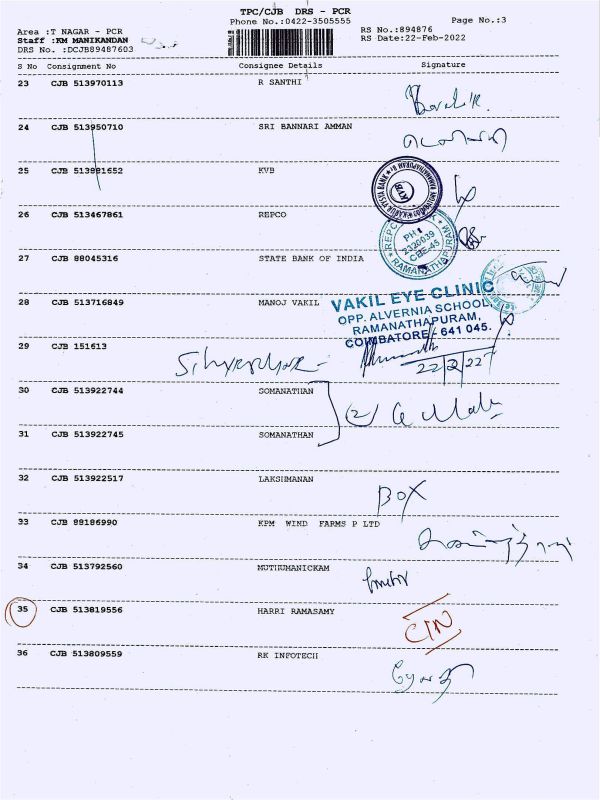 TPC/CJB DRS - PCR
Phone No.:0422-3505555
Page No.:3
Area :T NAGAR - PCR
RS No.:894876
Staff :KM MANIKANDAN
RS Date:22-Feb-2022
DRS No. :DCJB89487603
S No Consignment No Consignee Details Signature
23 CJB 513970113 R SANTHI
24 CJB 513950710 SRI BANNARI AMMAN
25 CJB 513881652 KVB
KVB
26 CJB 513467861 REPCO
REPCO
PH:
2320039
CBE-45
RAMANATHAPURAM
27 CJB 88045316 STATE BANK OF INDIA
28 CJB 513716849 MANOJ VAKIL
VAKIL EYE CLINIC
OPP. ALVERNIA SCHOOL,
RAMANATHAPURAM,
COIMBATORE - 641 045.
29 CJB 151613
22/2/22
30 CJB 513922744 SOMANATHAN
(2)
31 CJB 513922745 SOMANATHAN
32 CJB 513922517 LAKSHMANAN
BOX
33 CJB 88186990 KPM WIND FARMS P LTD
34 CJB 513792560 MUTHUMANICKAM
35 CJB 513819556 HARRI RAMASAMY
36 CJB 513809559 RK INFOTECH